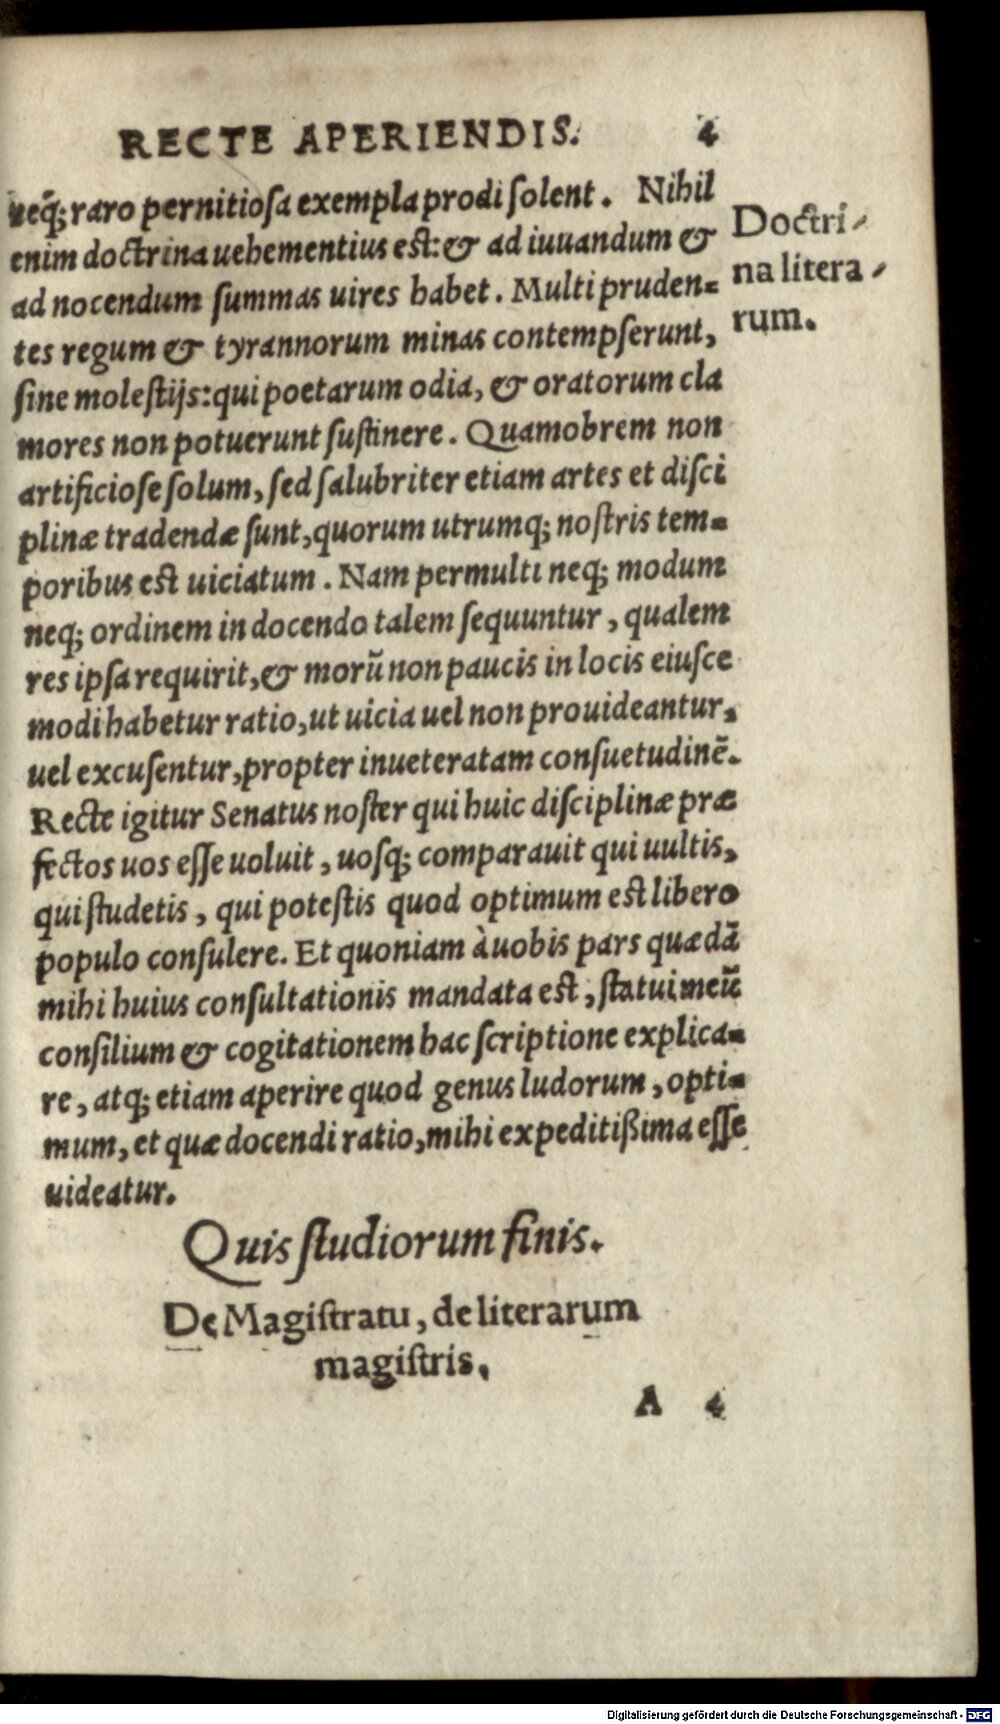 RECTE APERIENDIS. 4
neq̃; raro pernitiosa exempla prodi solent. Nihil
enim doctrina uehementius est: & ad iuuandum &
ad nocendum summas uires habet. Multi pruden=
tes regum & tyrannorum minas contempserunt,
sine molestijs: qui poetarum odia, & oratorum cla
mores non potuerunt sustinere. Quamobrem non
artificiose solum, sed salubriter etiam artes et disci
plinæ tradendæ sunt, quorum utrumq; nostris tem=
poribus est uiciatum. Nam permulti neq; modum
neq; ordinem in docendo talem sequuntur, qualem
res ipsa requirit, & morũ non paucis in locis eiusce
modi habetur ratio, ut uicia uel non prouideantur,
uel excusentur, propter inueteratam consuetudinẽ.
Recte igitur Senatus noster qui huic disciplinæ præ
fectos uos esse uoluit, uosq; comparauit qui uultis,
qui studetis, qui potestis quod optimum est libero
populo consulere. Et quoniam à uobis pars quædã
mihi huius consultationis mandata est, statui meũ
consilium & cogitationem hac scriptione explica=
re, atq; etiam aperire quod genus ludorum, opti=
mum, et quæ docendi ratio, mihi expeditißima esse
uideatur.
Doctri-
na litera-
rum.
Quis studiorum finis.
De Magistratu, de literarum
magistris.
A 4
Digitalisierung gefördert durch die Deutsche Forschungsgemeinschaft - DFG